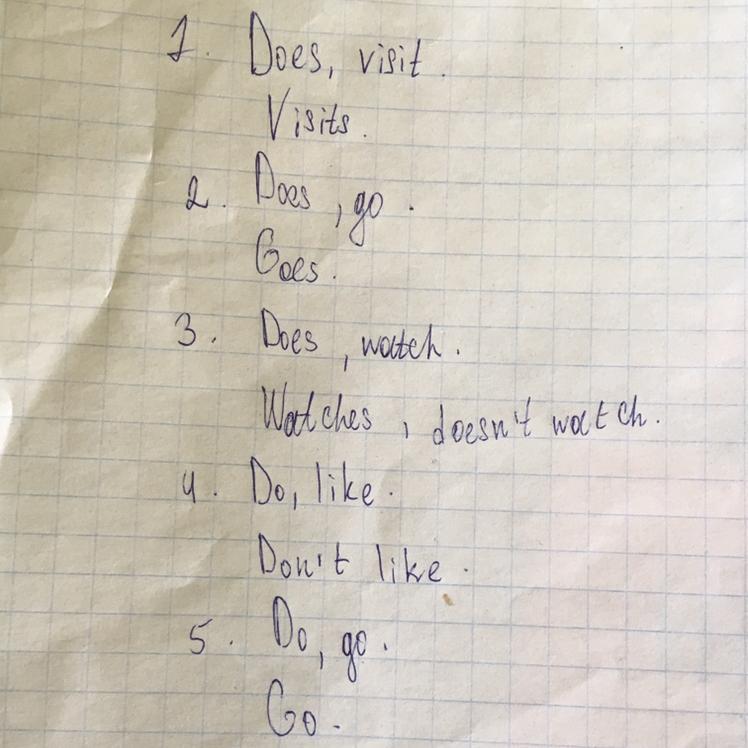 1. Does, visit.
Visits.
2. Does, go.
Goes.
3. Does, watch.
Watches, doesn't watch.
4. Do, like.
Don't like.
5. Do, go.
Go.